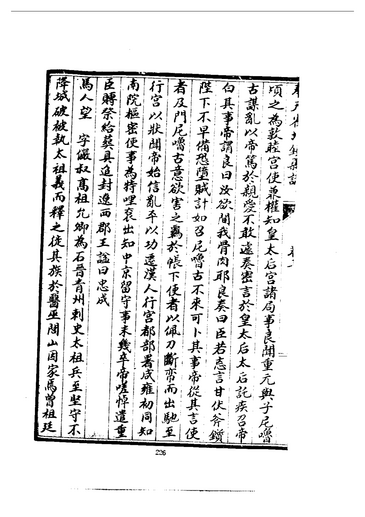 頃之為敦睦宮使兼權知皇太后宮諸局事良聞重元與子尼嚕
古謀亂以帝篤於親愛不敢遽奏密言於皇太后太后託疾召帝
白其事帝謂良曰汝欲間我骨肉耶良奏曰臣若忘言甘伏斧鑕
陛下不早備恐墮賊計如召尼嚕古不來可卜其事帝從其言使
者及門尼嚕古意欲害之羈於帳下使者以佩刀斷帟而出馳至
行宮以狀聞帝始信亂平以功遷漢人行宮都部署咸雍初同知
南院樞密使事為特哩袞出知中京留守事未幾卒帝嗟悼遣重
臣賻祭給葬具追封遼西郡王諡曰忠成
馬人望 字儼叔高祖允卿為石晉青州刺史太祖兵至堅守不
降城破被執太祖義而釋之徙其族於醫巫閭山因家焉曾祖廷
226